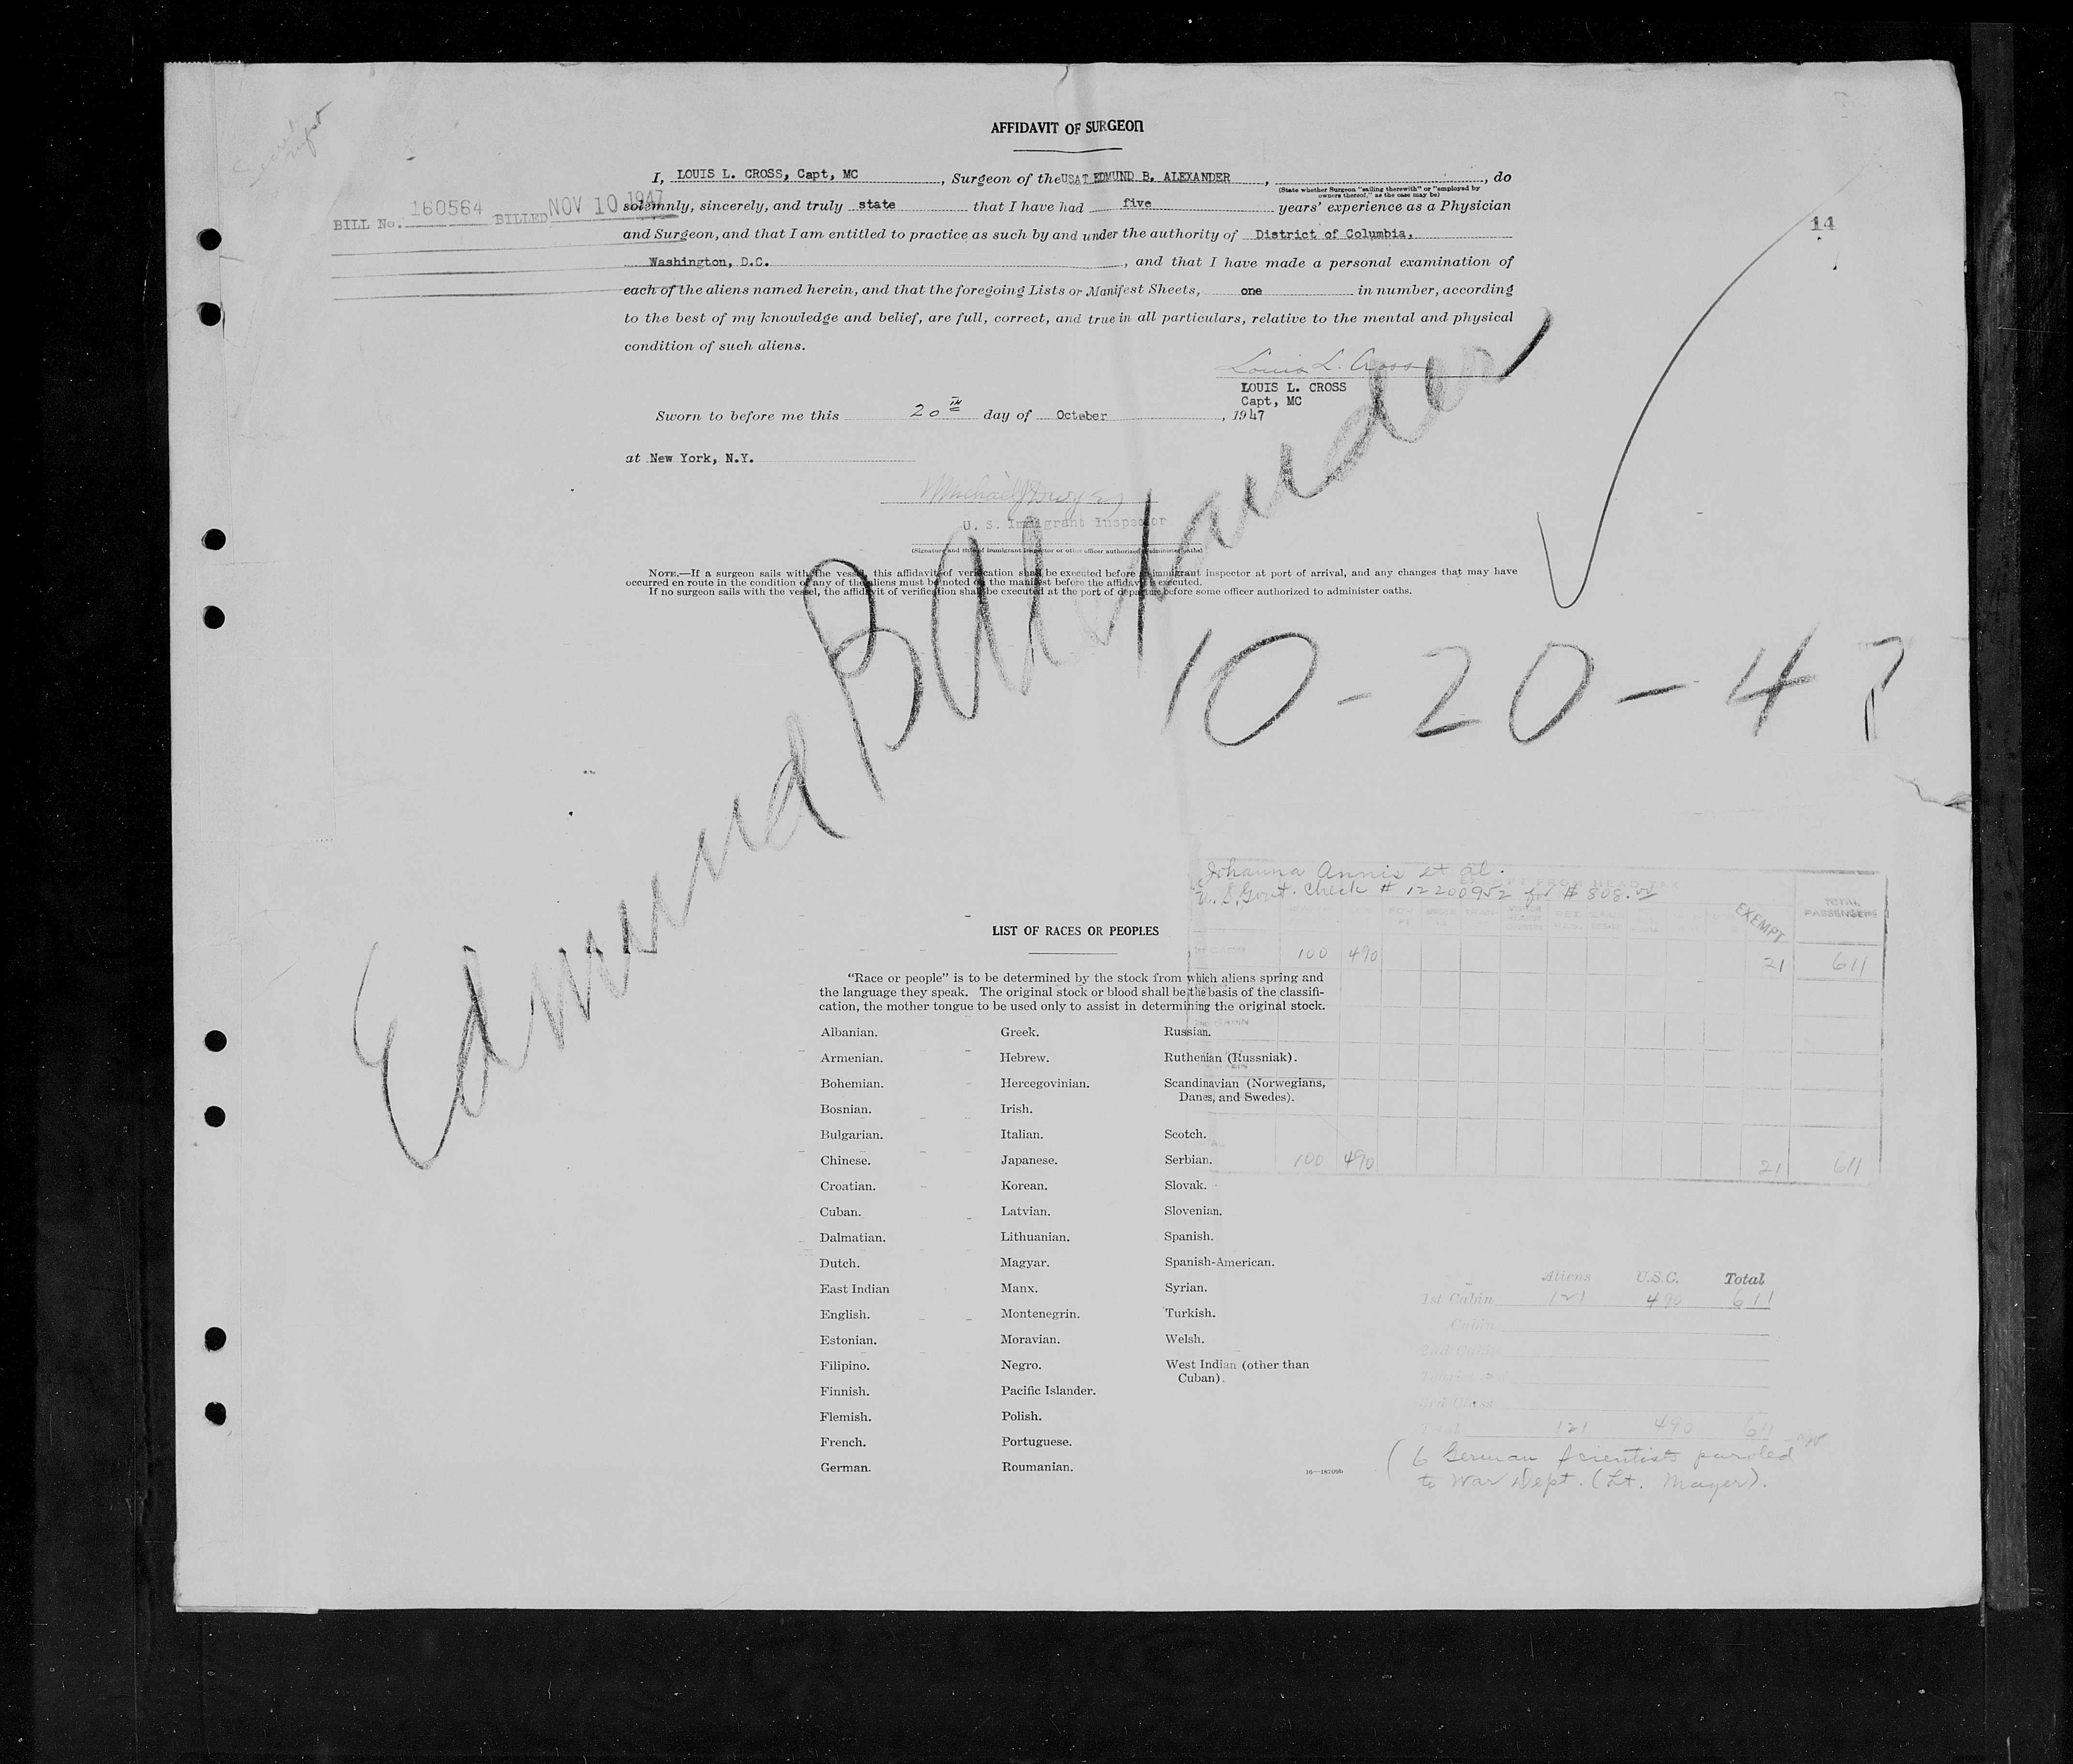 AFFIDAVIT OF SURGEON
I, LOUIS L. CROSS, Capt, MC, Surgeon of the USAT EDMUND B. ALEXANDER, , do
(State whether Surgeon "sailing therewith" or "employed by
owners thereof," as the case may be)
solemnly, sincerely, and truly state that I have had five years' experience as a Physician
BILL No. 160564 BILLED NOV 10 1947
14
and Surgeon, and that I am entitled to practice as such by and under the authority of District of Columbia,
Washington, D.C. , and that I have made a personal examination of
each of the aliens named herein, and that the foregoing Lists or Manifest Sheets, one in number, according
to the best of my knowledge and belief, are full, correct, and true in all particulars, relative to the mental and physical
condition of such aliens.
Louis L. Cross
LOUIS L. CROSS
Capt, MC
Sworn to before me this 20TH day of October, 1947
at New York, N.Y.
U. S. Immigrant Inspector
(Signature and title of immigrant inspector or other officer authorized to administer oaths)
NOTE.—If a surgeon sails with the vessel, this affidavit of verification shall be executed before an immigrant inspector at port of arrival, and any changes that may have
occurred en route in the condition of any of the aliens must be noted on the manifest before the affidavit is executed.
If no surgeon sails with the vessel, the affidavit of verification shall be executed at the port of departure before some officer authorized to administer oaths.
Edmund B Alexander
10-20-47
Johanna Annis et al.
U. S. Govt. check # 12200952 for $ 808.
EXEMPT FROM HEAD TAX
EXEMPT
TOTAL PASSENGERS
100 490 21 611
100 490 21 611
LIST OF RACES OR PEOPLES
"Race or people" is to be determined by the stock from which aliens spring and
the language they speak. The original stock or blood shall be the basis of the classifi-
cation, the mother tongue to be used only to assist in determining the original stock.
Albanian. Greek. Russian.
Armenian. Hebrew. Ruthenian (Russniak).
Bohemian. Hercegovinian. Scandinavian (Norwegians,
Danes, and Swedes).
Bosnian. Irish.
Bulgarian. Italian. Scotch.
Chinese. Japanese. Serbian.
Croatian. Korean. Slovak.
Cuban. Latvian. Slovenian.
Dalmatian. Lithuanian. Spanish.
Dutch. Magyar. Spanish-American.
East Indian Manx. Syrian.
English. Montenegrin. Turkish.
Estonian. Moravian. Welsh.
Filipino. Negro. West Indian (other than
Cuban).
Finnish. Pacific Islander.
Flemish. Polish.
French. Portuguese.
German. Roumanian.
16—18709b
Aliens U.S.C. Total
1st Cabin 121 490 611
Cabin
2nd Cabin
3rd Class
Total 121 490 611
(6 German scientists paroled
to War Dept. (Lt. Mayer).